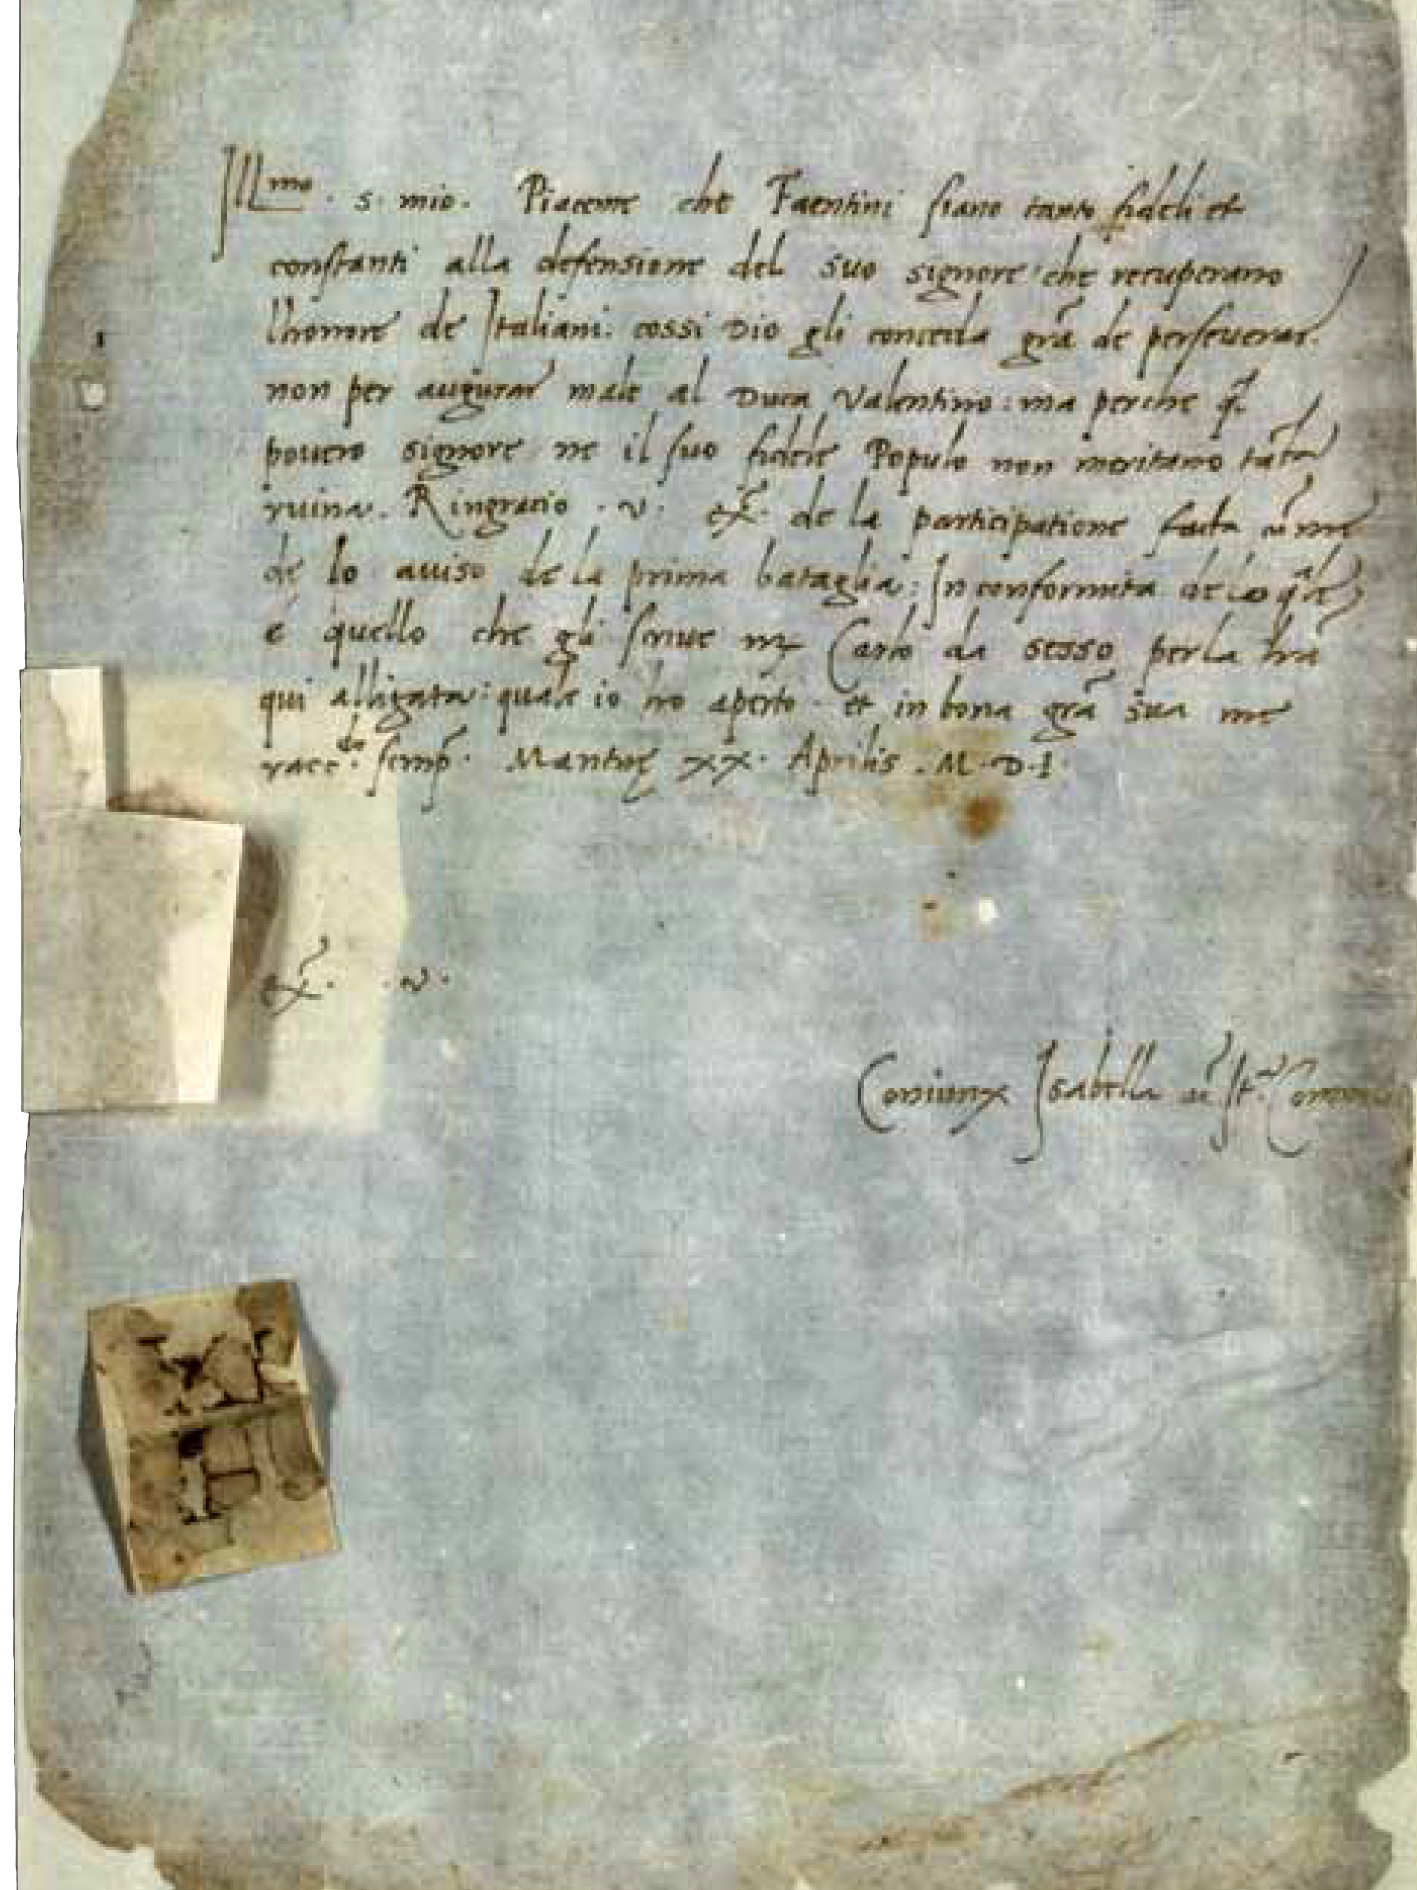 Ill.mo s. mio. Piaceme che Faentini siano tanto fideli et
constanti alla defensione del suo signore che recuperano
l'honore de Italiani. cossi Dio gli conceda grã de perseverar.
non per augurar male al Duca Valentino: ma perche q.l
povero signore ne il suo fidele Populo non meritano tãta
ruina. Ringratio . v. ex.̃ de la participatione facta cũ me
de lo aviso de la prima bataglia: In conformita de lo q.ale
é quello che gli scrive m̃ Carlo da Sesso per la lrã
qui alligata: quale io ho aperto. et in bona grã sua me
racc.do semp̃. Mantuę xx. Aprilis. M.D.I.
ex.̃ .v.
Coniunx Isabella cũ